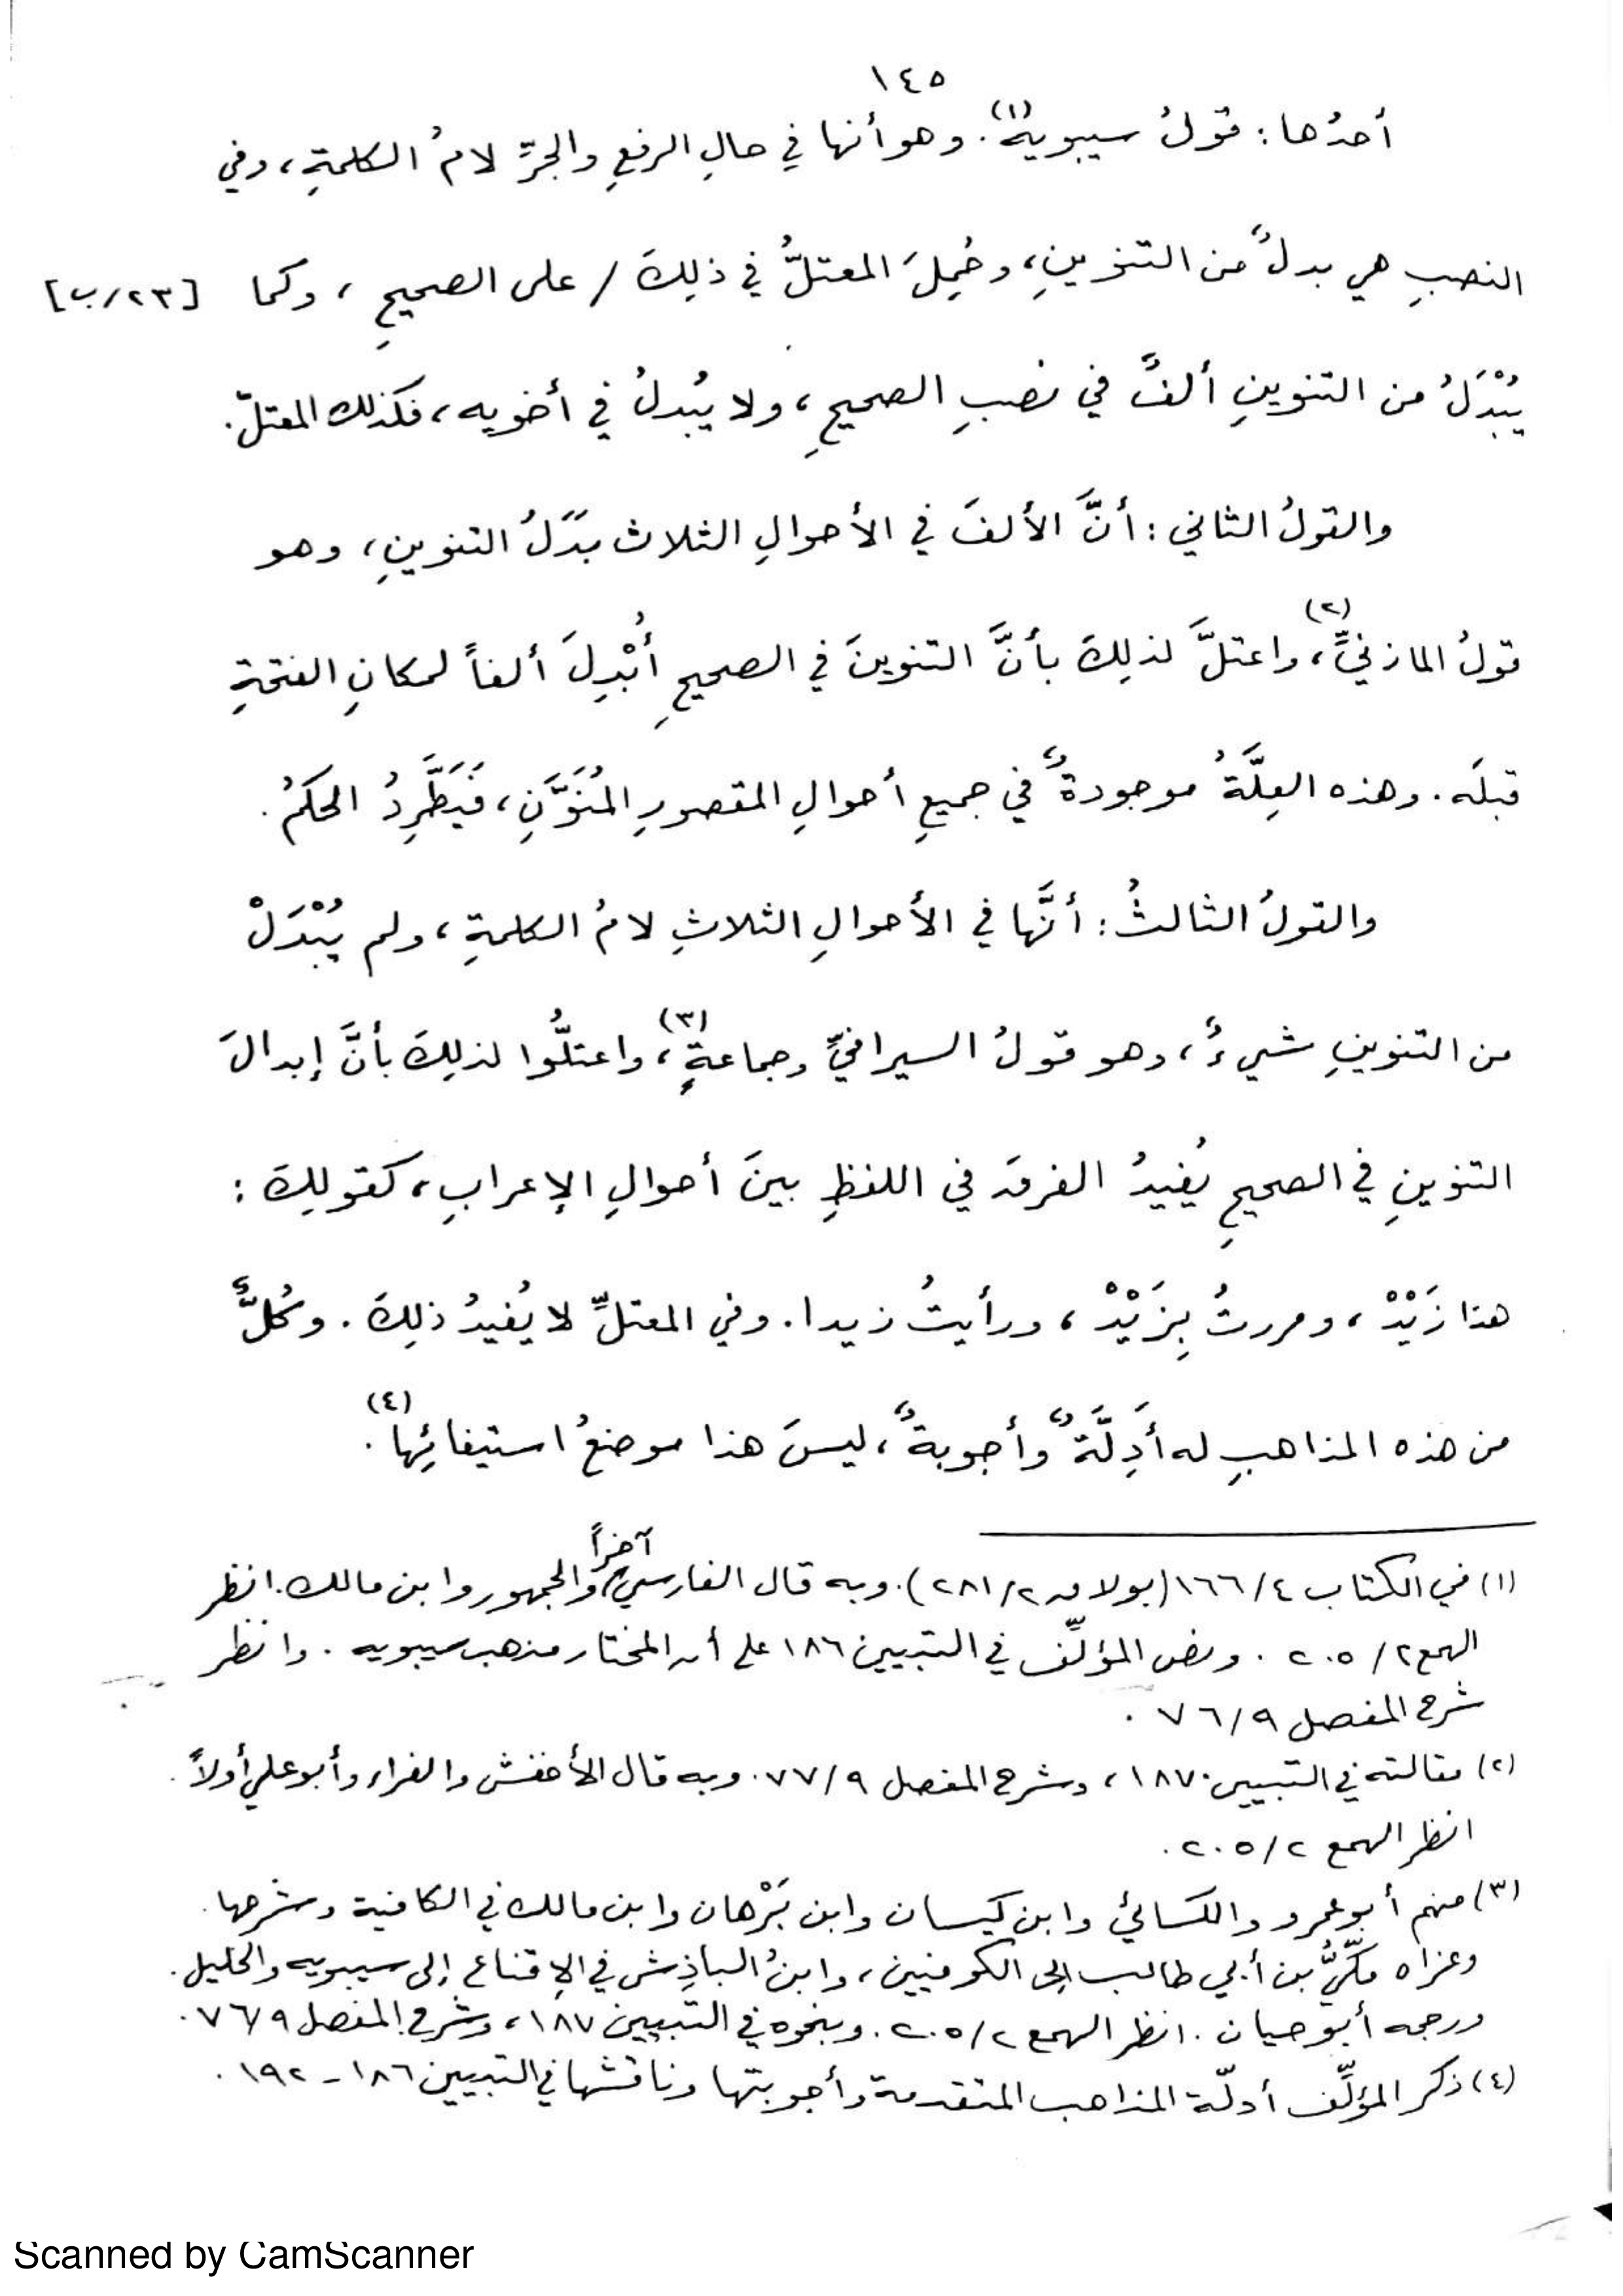 ١٤٥
أحدُها : قولُ سيبويه(١). وهو أنها في حالِ الرفعِ والجرِّ لامُ الكلمةِ، وفي
النصبِ هي بدلٌ من التنوينِ، وحُمِلَ المعتلُّ في ذلِكَ / على الصحيحِ ، وكما [٢٣/ب]
يُبْدَلُ من التنوينِ ألفٌ في نصبِ الصحيحِ ، ولا يُبدلُ في أخويه، فكذلك المعتلّ.
والقولُ الثاني : أنَّ الألفَ في الأحوالِ الثلاث بَدَلُ التنوينِ، وهو
قولُ المازنيِّ(٢)، واعتلَّ لذلِكَ بأنَّ التنوينَ في الصحيحِ أُبْدِلَ ألفاً لمكانِ الفتحةِ
قبلَه. وهذه العِلَّةُ موجودةٌ في جميعِ أحوالِ المقصورِ المُنَوَّنِ، فَيَطَّرِدُ الحكمُ.
والقولُ الثالثُ : أنَّها في الأحوالِ الثلاثِ لامُ الكلمةِ، ولم يُبْدَلْ
من التنوينِ شيءٌ، وهو قولُ السيرافيِّ وجماعةٍ(٣)، واعتلُّوا لذلِكَ بأنَّ إبدالَ
التنوينِ في الصحيحِ يُفيدُ الفرقَ في اللفظِ بينَ أحوالِ الإعرابِ، كقولِكَ :
هذا زَيْدْ ، ومررتُ بِزَيْدْ ، ورأيتُ زيدا. وفي المعتلِّ لا يُفيدُ ذلِكَ . وكُلٌّ
من هذه المذاهبِ له أَدِلَّةٌ وأجوبةٌ، ليسَ هذا موضعُ استيفائِها(٤).
(١) في الكتاب ١٦٦/٤ (بولاق ٢٨١/٢). وبه قال الفارسي آخراً والجمهور وابن مالك. انظر
الهمع ٢٠٥/٢ . ونص المؤلِّف في التبيين ١٨٦ على أن المختار مذهب سيبويه . وانظر
شرح المفصل ٧٦/٩ .
(٢) مقالته في التبيين ١٨٧ ، وشرح المفصل ٧٧/٩. وبه قال الأخفش والفراء وأبو علي أولاً .
انظر الهمع ٢٠٥/٢.
(٣) منهم أبو عمرو والكسائي وابن كيسان وابن بَرْهان وابن مالك في الكافية وشرحها.
وعزاه مكّيُّ بن أبي طالب إلى الكوفيين، وابنُ الباذِش في الإقناع إلى سيبويه والخليل.
ورجحه أبو حيان . انظر الهمع ٢٠٥/٢. وبنحوه في التبيين ١٨٧ ، وشرح المفصل ٧٦/٩.
(٤) ذكر المؤلِّف أدلّة المذاهب المتقدمة وأجوبتها وناقشها في التبيين ١٨٦ - ١٩٢ .
Scanned by CamScanner